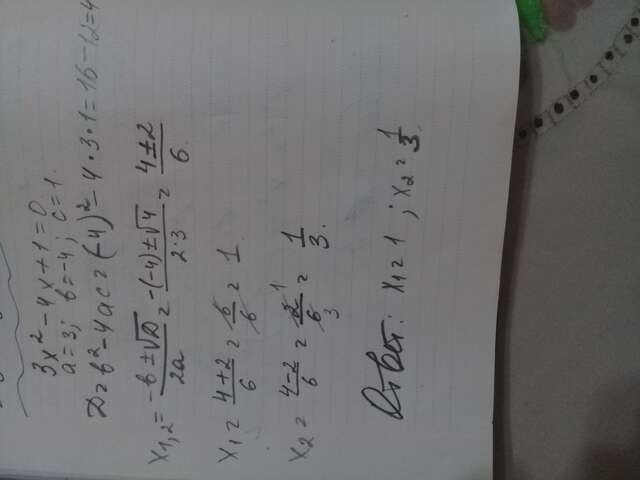 3x² - 4x + 1 = 0
a = 3; b = -4; c = 1.
D = b² - 4ac = (-4)² - 4 · 3 · 1 = 16 - 12 = 4
x₁,₂ = (-b ± √D)/(2a) = (-(-4) ± √4)/(2·3) = (4 ± 2)/6
x₁ = (4 + 2)/6 = 6/6 = 1.
x₂ = (4 - 2)/6 = 2/6 = 1/3.
Ответ: x₁ = 1 ; x₂ = 1/3.